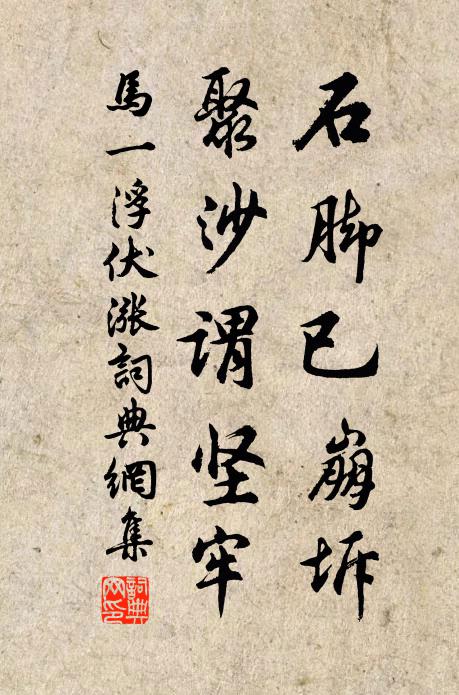 石脚已崩坼
聚沙谓坚牢
馬一浮伏漲詞典網集
詞典網印